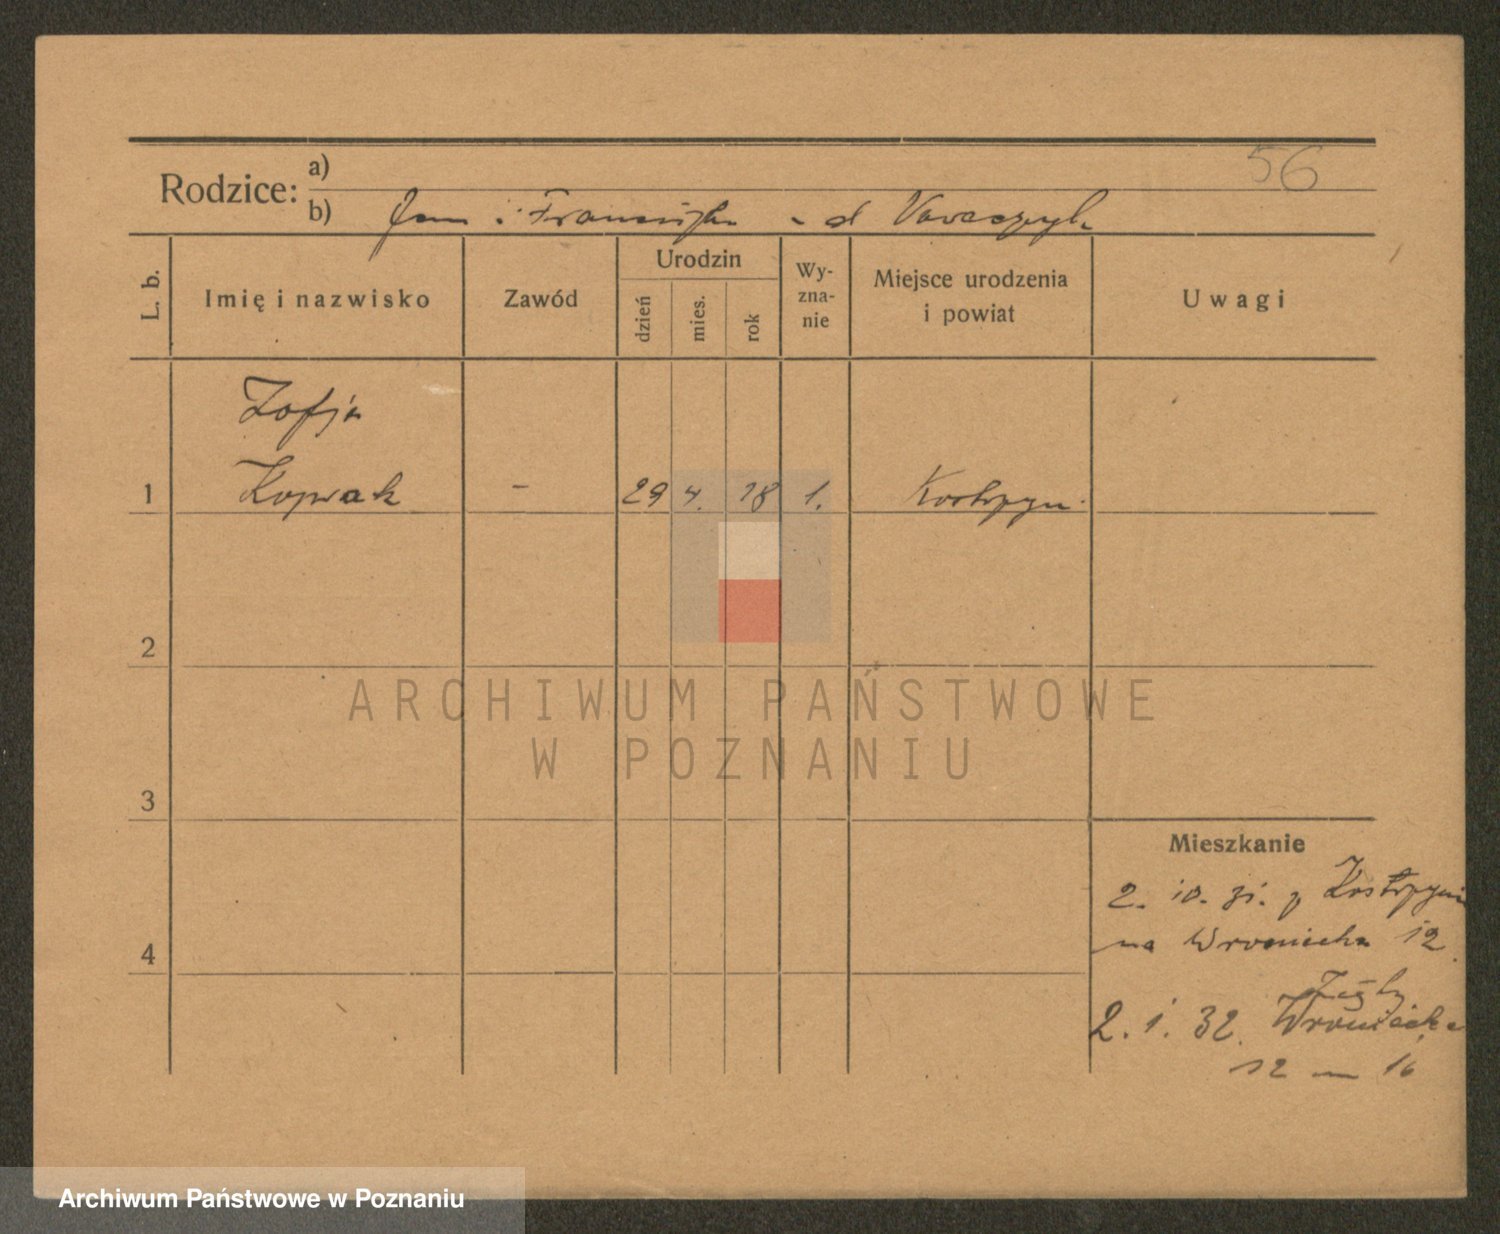 56
Rodzice: a)
b) Jan i Franciszka
L. b. Imię i nazwisko Zawód Urodzin dzień mies. rok Wyznanie Miejsce urodzenia i powiat Uwagi
Zofja
1 – 29 4. 18 1. Kostrzyn.
2
ARCHIWUM PAŃSTWOWE
W POZNANIU
3
Mieszkanie
2. 10. 31. z Kostrzynia
4 na Wroniecka 12.
2. 1. 32. Wroniecka
12 – 16
Archiwum Państwowe w Poznaniu